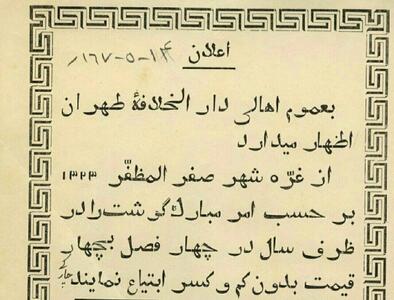 اعلان
۱۶۷-۵-۱۴
بعموم اهالی دار الخلافهٔ طهران
اظهار میدارد
از غرّه شهر صفر المظفّر ۱۳۲۳
بر حسب امر مبارك گوشت را در
ظرف سال در چهار فصل بچهار
قیمت بدون کم و کسر ابتیاع نمایند